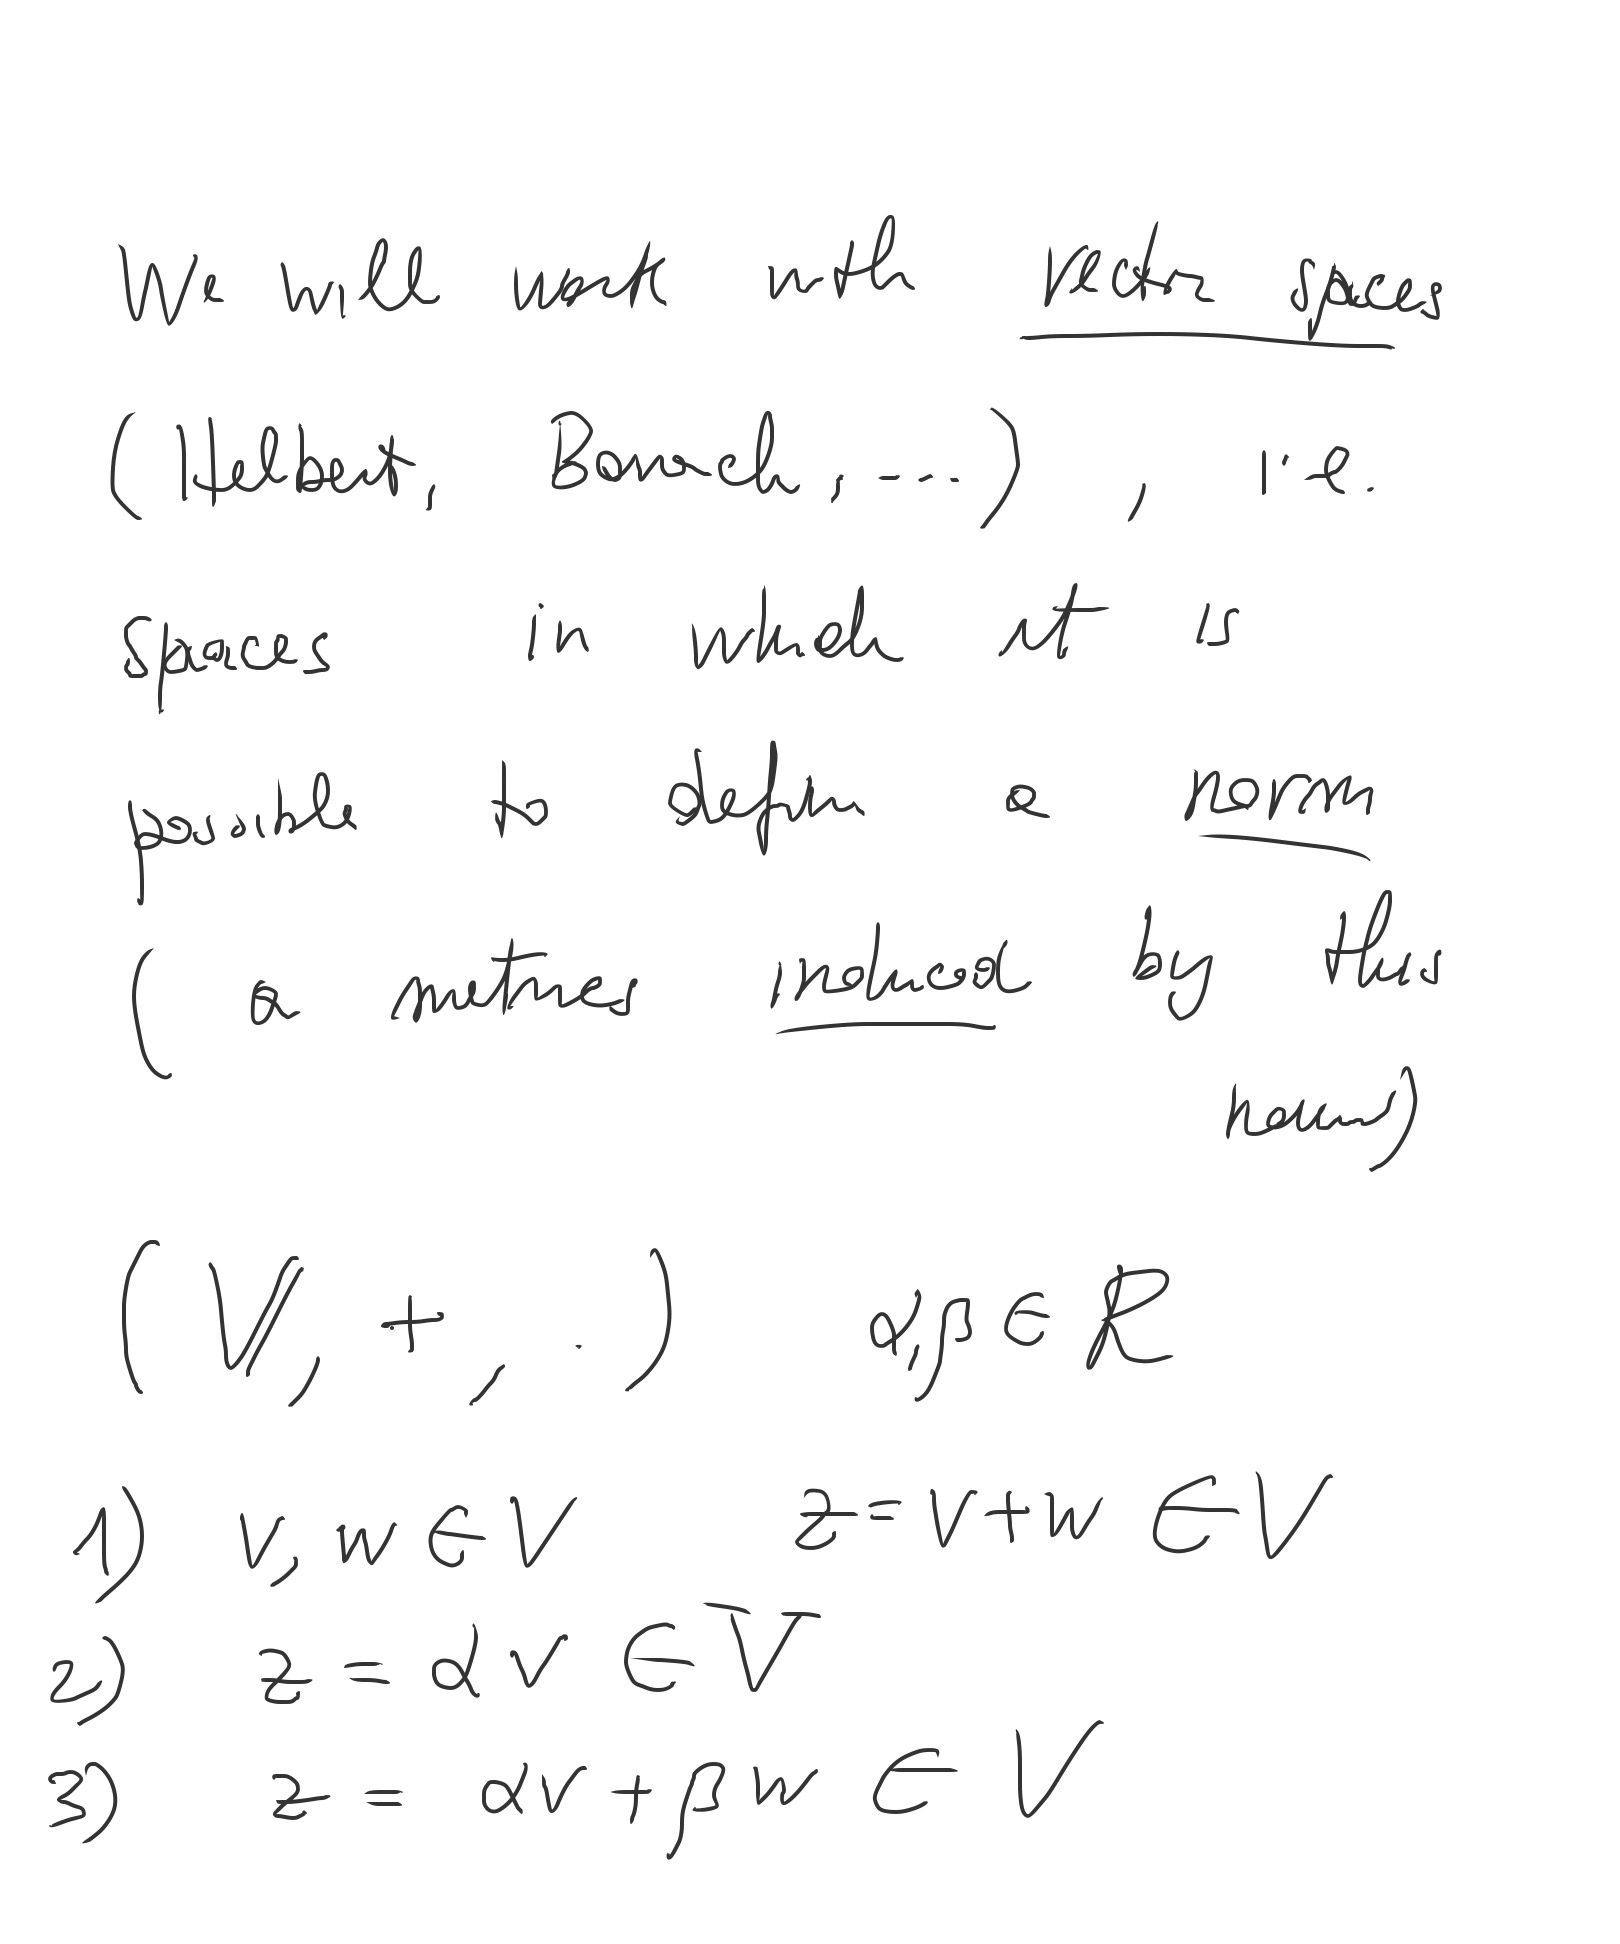 We will work with vector spaces
(Hilbert, Banach, ...), i.e.
spaces in which it is
possible to define a norm
(a metrics induced by this
norm)
(V, +, ·) α, β ∈ R
1) v, w ∈ V z = v + w ∈ V
2) z = α v ∈ V
3) z = α v + β w ∈ V